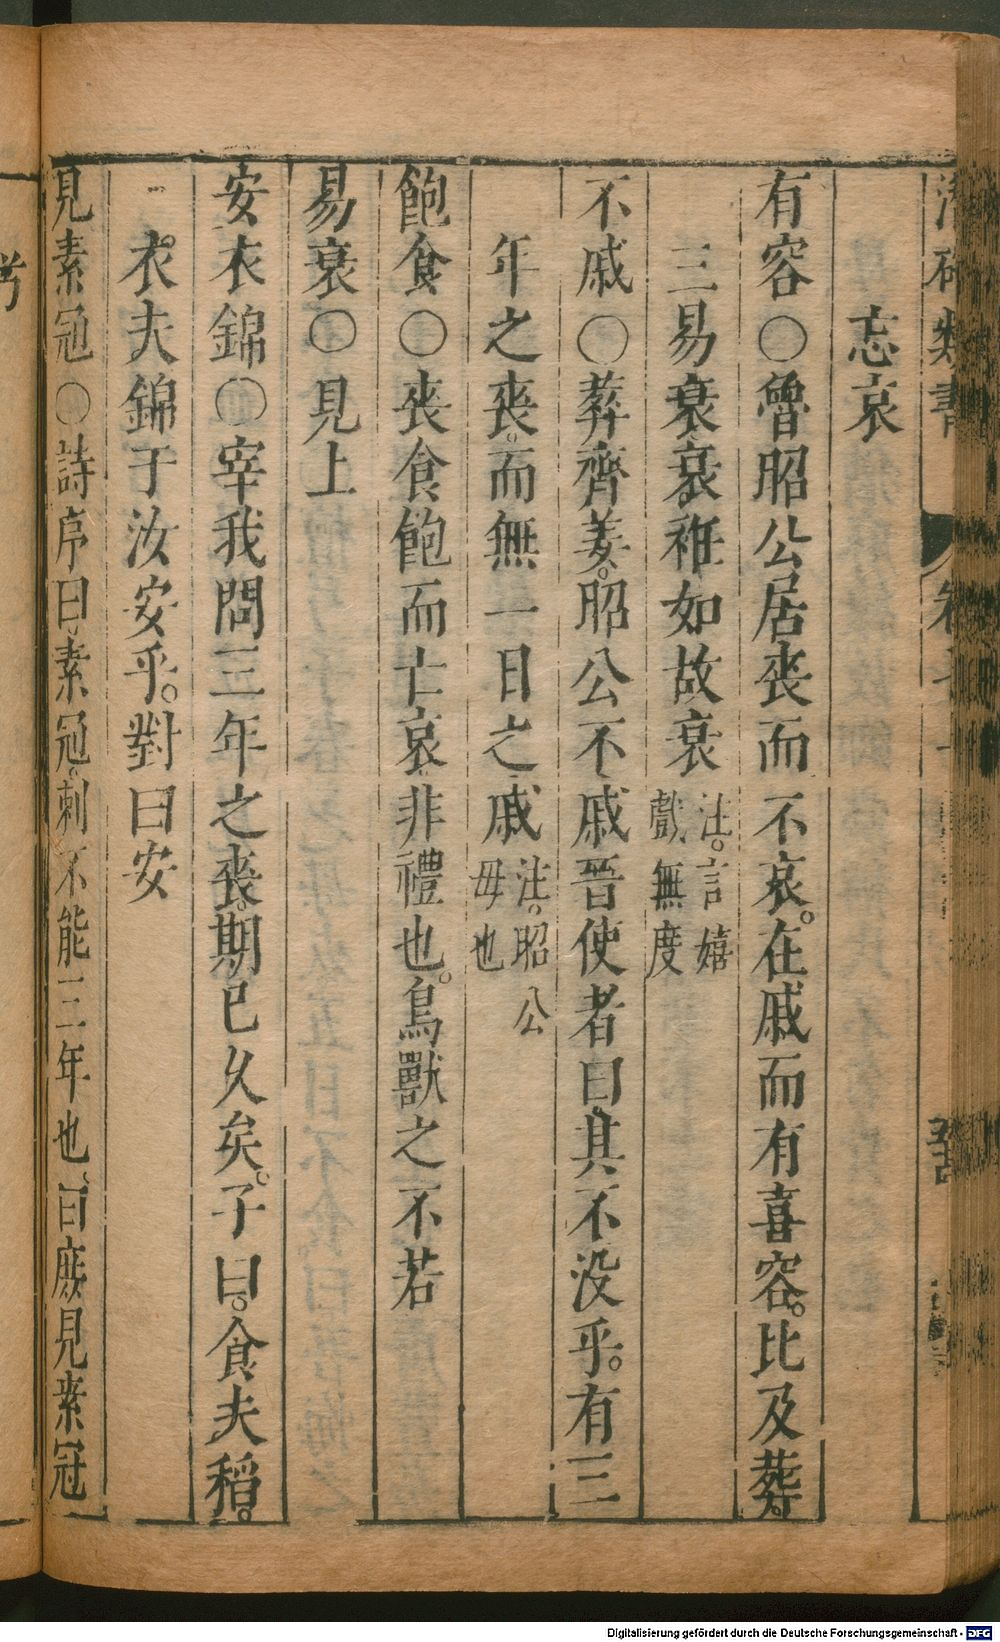 忘哀
有容〇魯昭公居丧而不哀。在戚而有喜容。比及葬
三易衰衰衽如故衰 注。言嬉戱無度
不戚〇葬齊姜。昭公不戚晉使者曰其不没乎。有三
年之丧。而無一日之戚 注。昭公毋也
飽食〇丧食飽而亡哀。非禮也。鳥獸之不若
易衰〇見上
安衣錦〇宰我問三年之丧。期已久矣。子曰。食夫稻。
衣夫錦于汝安乎。對曰安
見素冠〇詩序曰素冠刺不能三年也。曰庶見素冠
Digitalisierung gefördert durch die Deutsche Forschungsgemeinschaft - DFG